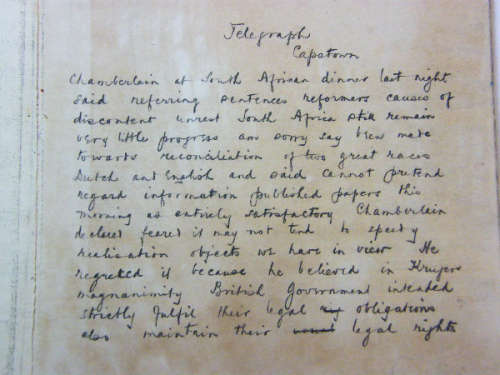 Telegraph
Capetown
Chamberlain at South African dinner last night
said referring sentences reformers causes of
discontent unrest South Africa still remain
very little progress am sorry say been made
towards reconciliation of two great races
Dutch and English and said cannot pretend
regard information published papers this
morning as entirely satisfactory Chamberlain
declared feared it may not tend to speedy
realisation objects we have in view He
regretted it because he believed in Krugers
magnanimity British Government intended
strictly fulfil their legal obligations
also maintain their legal rights